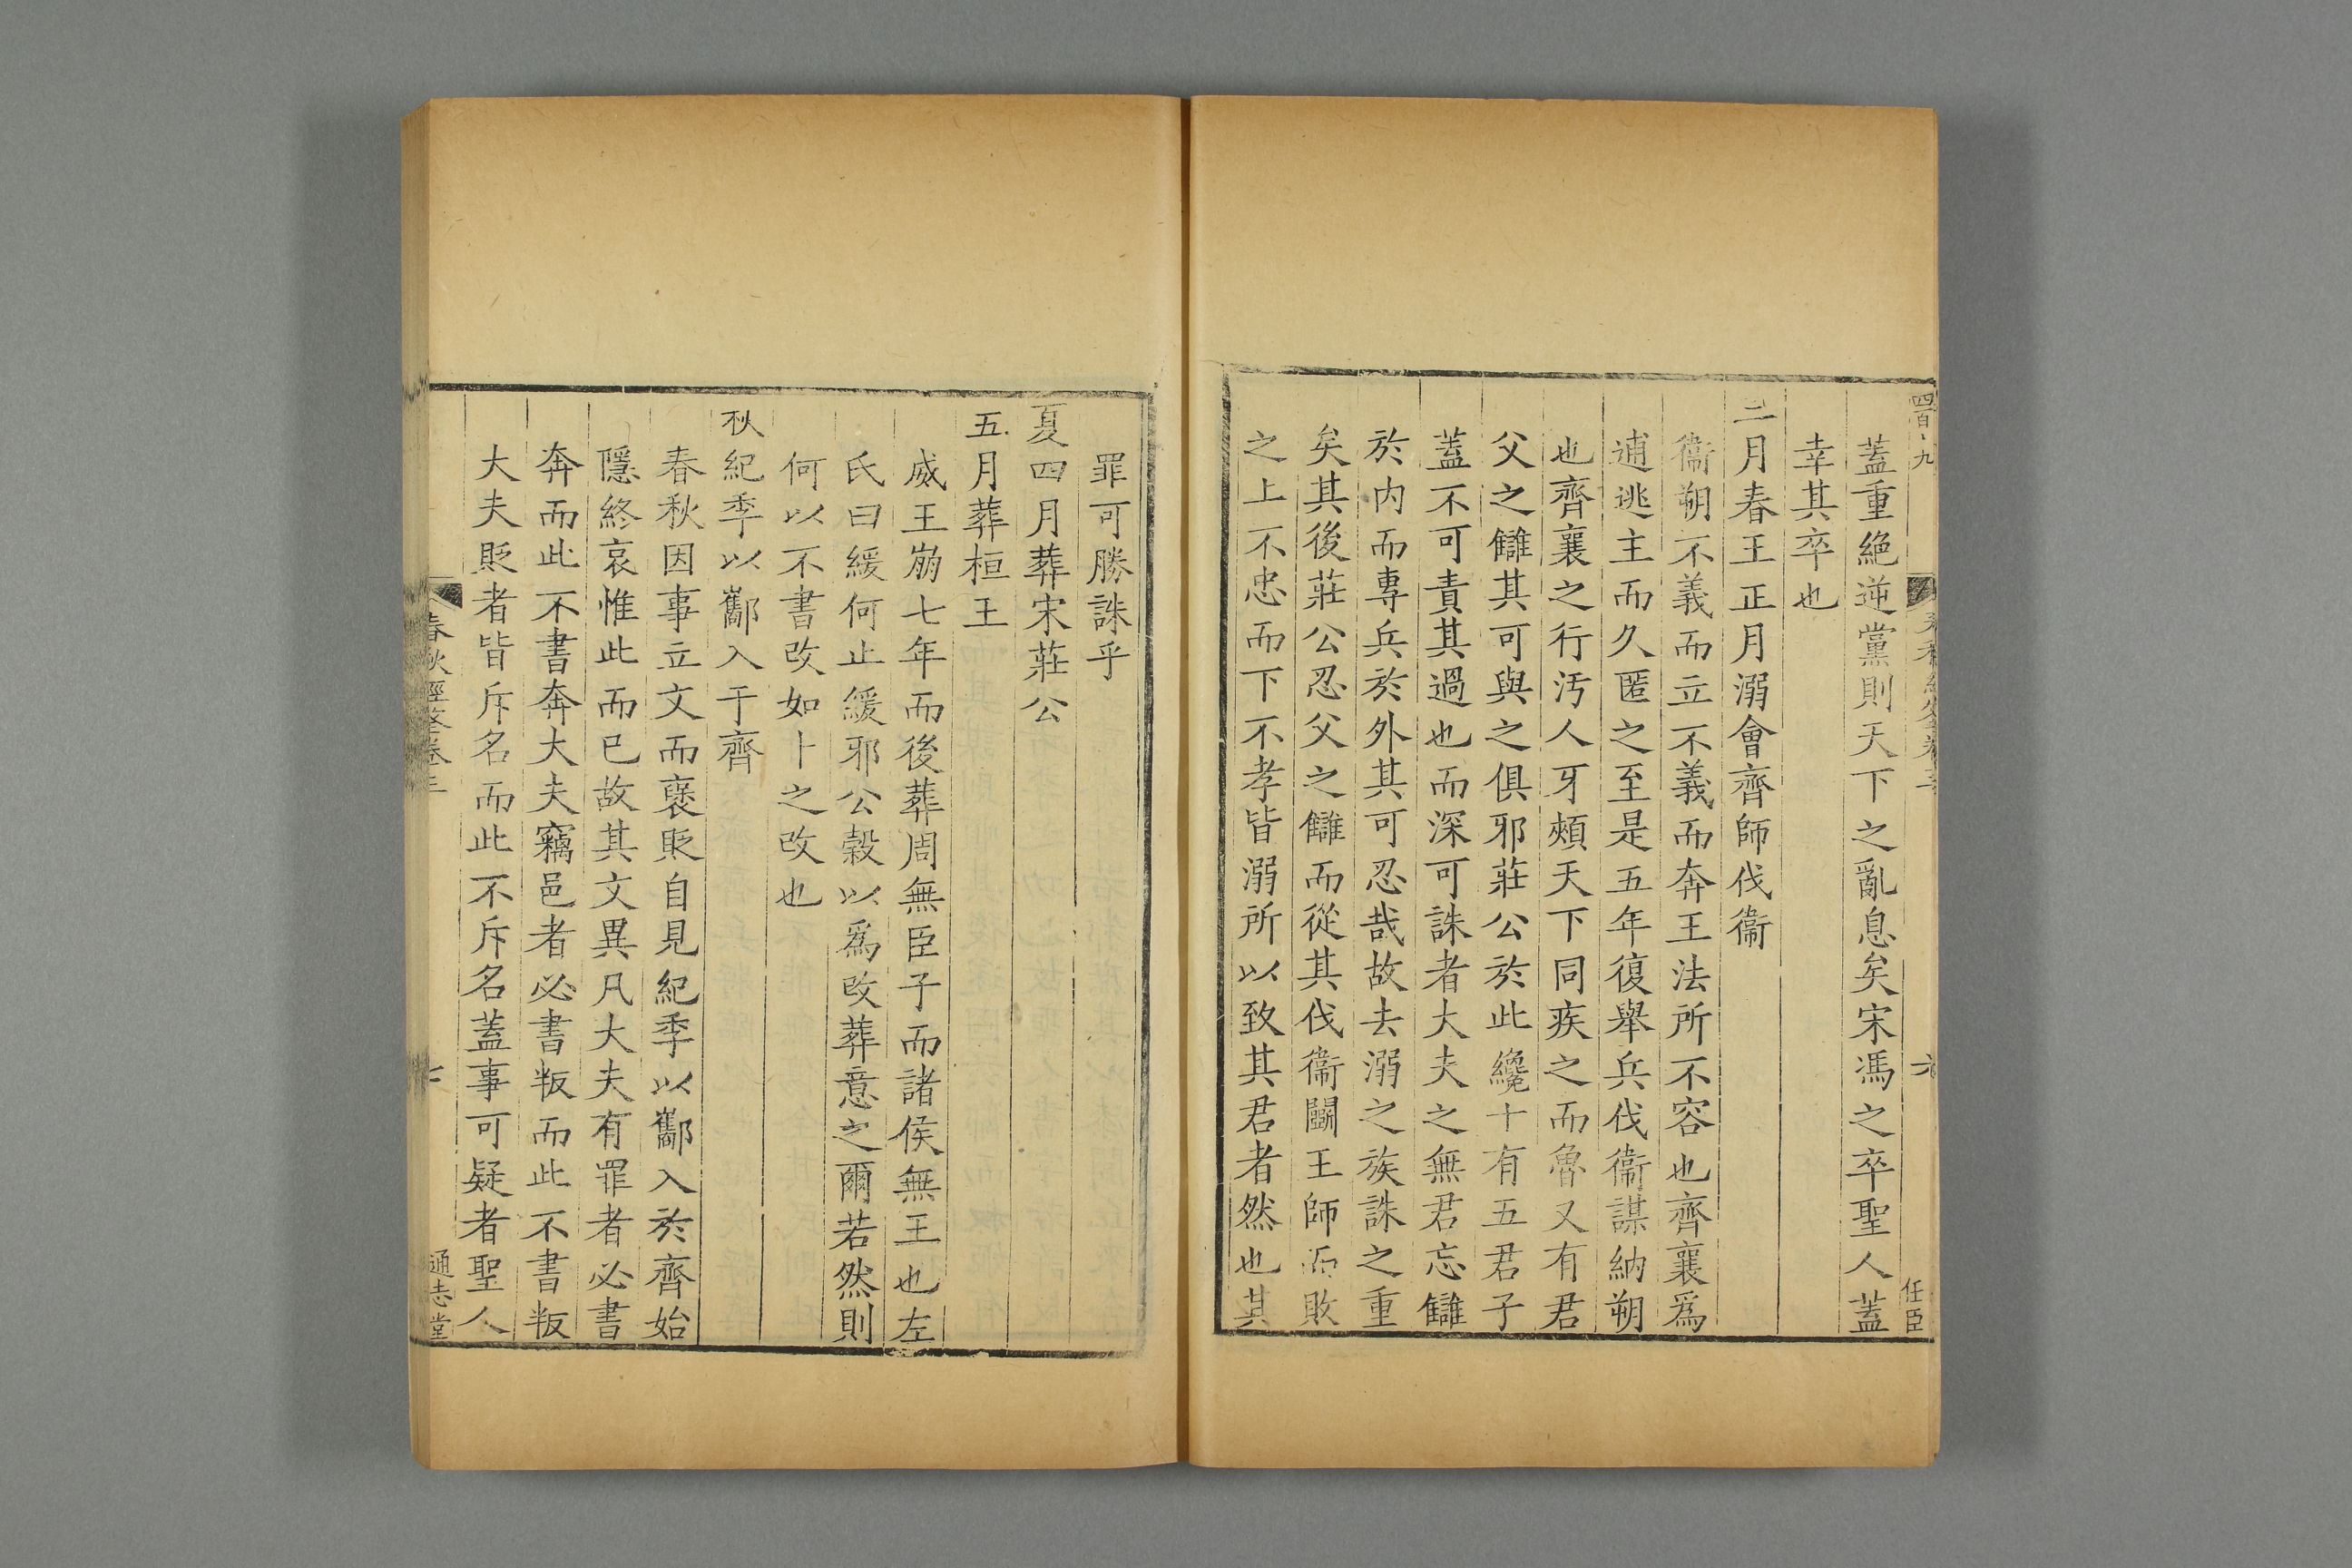 四百九
蓋重絕逆黨則天下之亂息矣宋馮之卒聖人蓋
幸其卒也
三月春王正月溺會齊師伐衞
衞朔不義而立不義而奔王法所不容也齊襄爲
逋逃主而久匿之至是五年復舉兵伐衞謀納朔
也齊襄之行汚人牙頰天下同疾之而魯又有君
父之讎其可與之俱邪莊公於此纔十有五君子
蓋不可責其過也而深可誅者大夫之無君忘讎
於内而專兵於外其可忍哉故去溺之族誅之重
矣其後莊公忍父之讎而從其伐衞鬭王師而敗
之上不忠而下不孝皆溺所以致其君者然也其
六
任臣
罪可勝誅乎
夏四月葬宋莊公
五月葬桓王
威王崩七年而後葬周無臣子而諸侯無王也左
氏曰緩何止緩邪公榖以爲改葬意之爾若然則
何以不書改如卜之改也
秋紀季以酅入于齊
春秋因事立文而襃貶自見紀季以酅入於齊始
隱終哀惟此而已故其文異凡大夫有罪者必書
奔而此不書奔大夫竊邑者必書叛而此不書叛
大夫貶者皆斥名而此不斥名蓋事可疑者聖人
春秋經筌卷三
七
通志堂